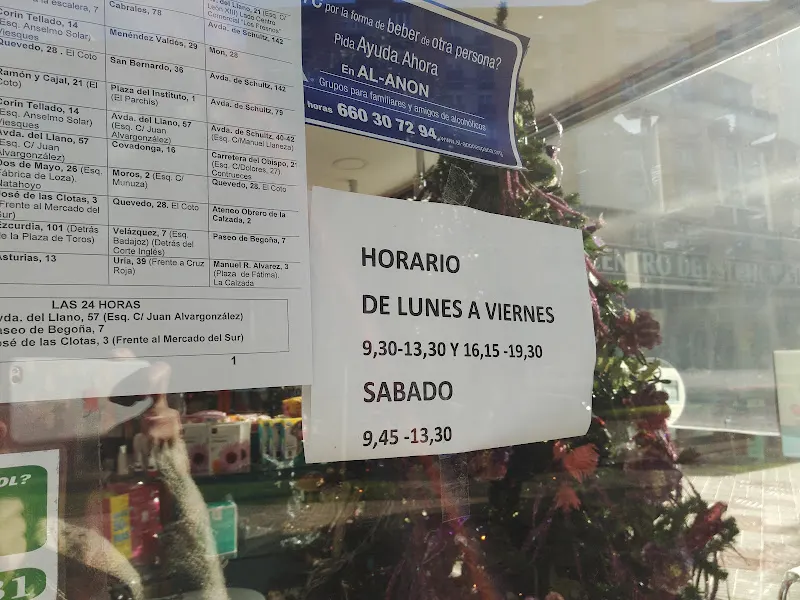 a escalera, 7
Corín Tellado, 14
(Esq. Anselmo Solar)
Viesques
Quevedo, 28. El Coto
Ramón y Cajal, 21 (El
Coto)
Corín Tellado, 14
(Esq. Anselmo Solar)
Viesques
Avda. del Llano, 57
(Esq. C/ Juan
Alvargonzález)
Dos de Mayo, 26 (Esq.
Fábrica de Loza).
Natahoyo
José de las Clotas, 3
(Frente al Mercado del
Sur)
Ezcurdia, 101 (Detrás
de la Plaza de Toros)
Asturias, 13
Cabrales, 78
Menéndez Valdés, 29
San Bernardo, 36
Plaza del Instituto, 1
(El Parchís)
Avda. del Llano, 57
(Esq. C/ Juan
Alvargonzález)
Covadonga, 16
Moros, 2 (Esq. C/
Munuza)
Quevedo, 28. El Coto
Velázquez, 7 (Esq.
Badajoz) (Detrás del
Corte Inglés)
Uría, 39 (Frente a Cruz
Roja)
. del Llano, 21 (Esq. C/
León XIII Lado Centro
Comercial "Los Fresnos"
Avda. de Schultz, 142
Mon, 28
Avda. de Schultz, 142
Avda. de Schultz, 79
Avda. de Schultz, 40-42
(Esq. C/Manuel Llaneza)
Carretera del Obispo, 21
(Esq. C/Dolores, 27)
Contrueces
Quevedo, 28. El Coto
Ateneo Obrero de la
Calzada, 2
Paseo de Begoña, 7
Manuel R. Alvarez, 3
(Plaza de Fátima).
La Calzada
LAS 24 HORAS
Avda. del Llano, 57 (Esq. C/ Juan Alvargonzález)
Paseo de Begoña, 7
José de las Clotas, 3 (Frente al Mercado del Sur)
1
por la forma de beber de otra persona?
Pida Ayuda Ahora
En AL-ANON
Grupos para familiares y amigos de alcohólicos
horas 660 30 72 94,
HORARIO
DE LUNES A VIERNES
9,30-13,30 Y 16,15 -19,30
SABADO
9,45 -13,30
OL?
31